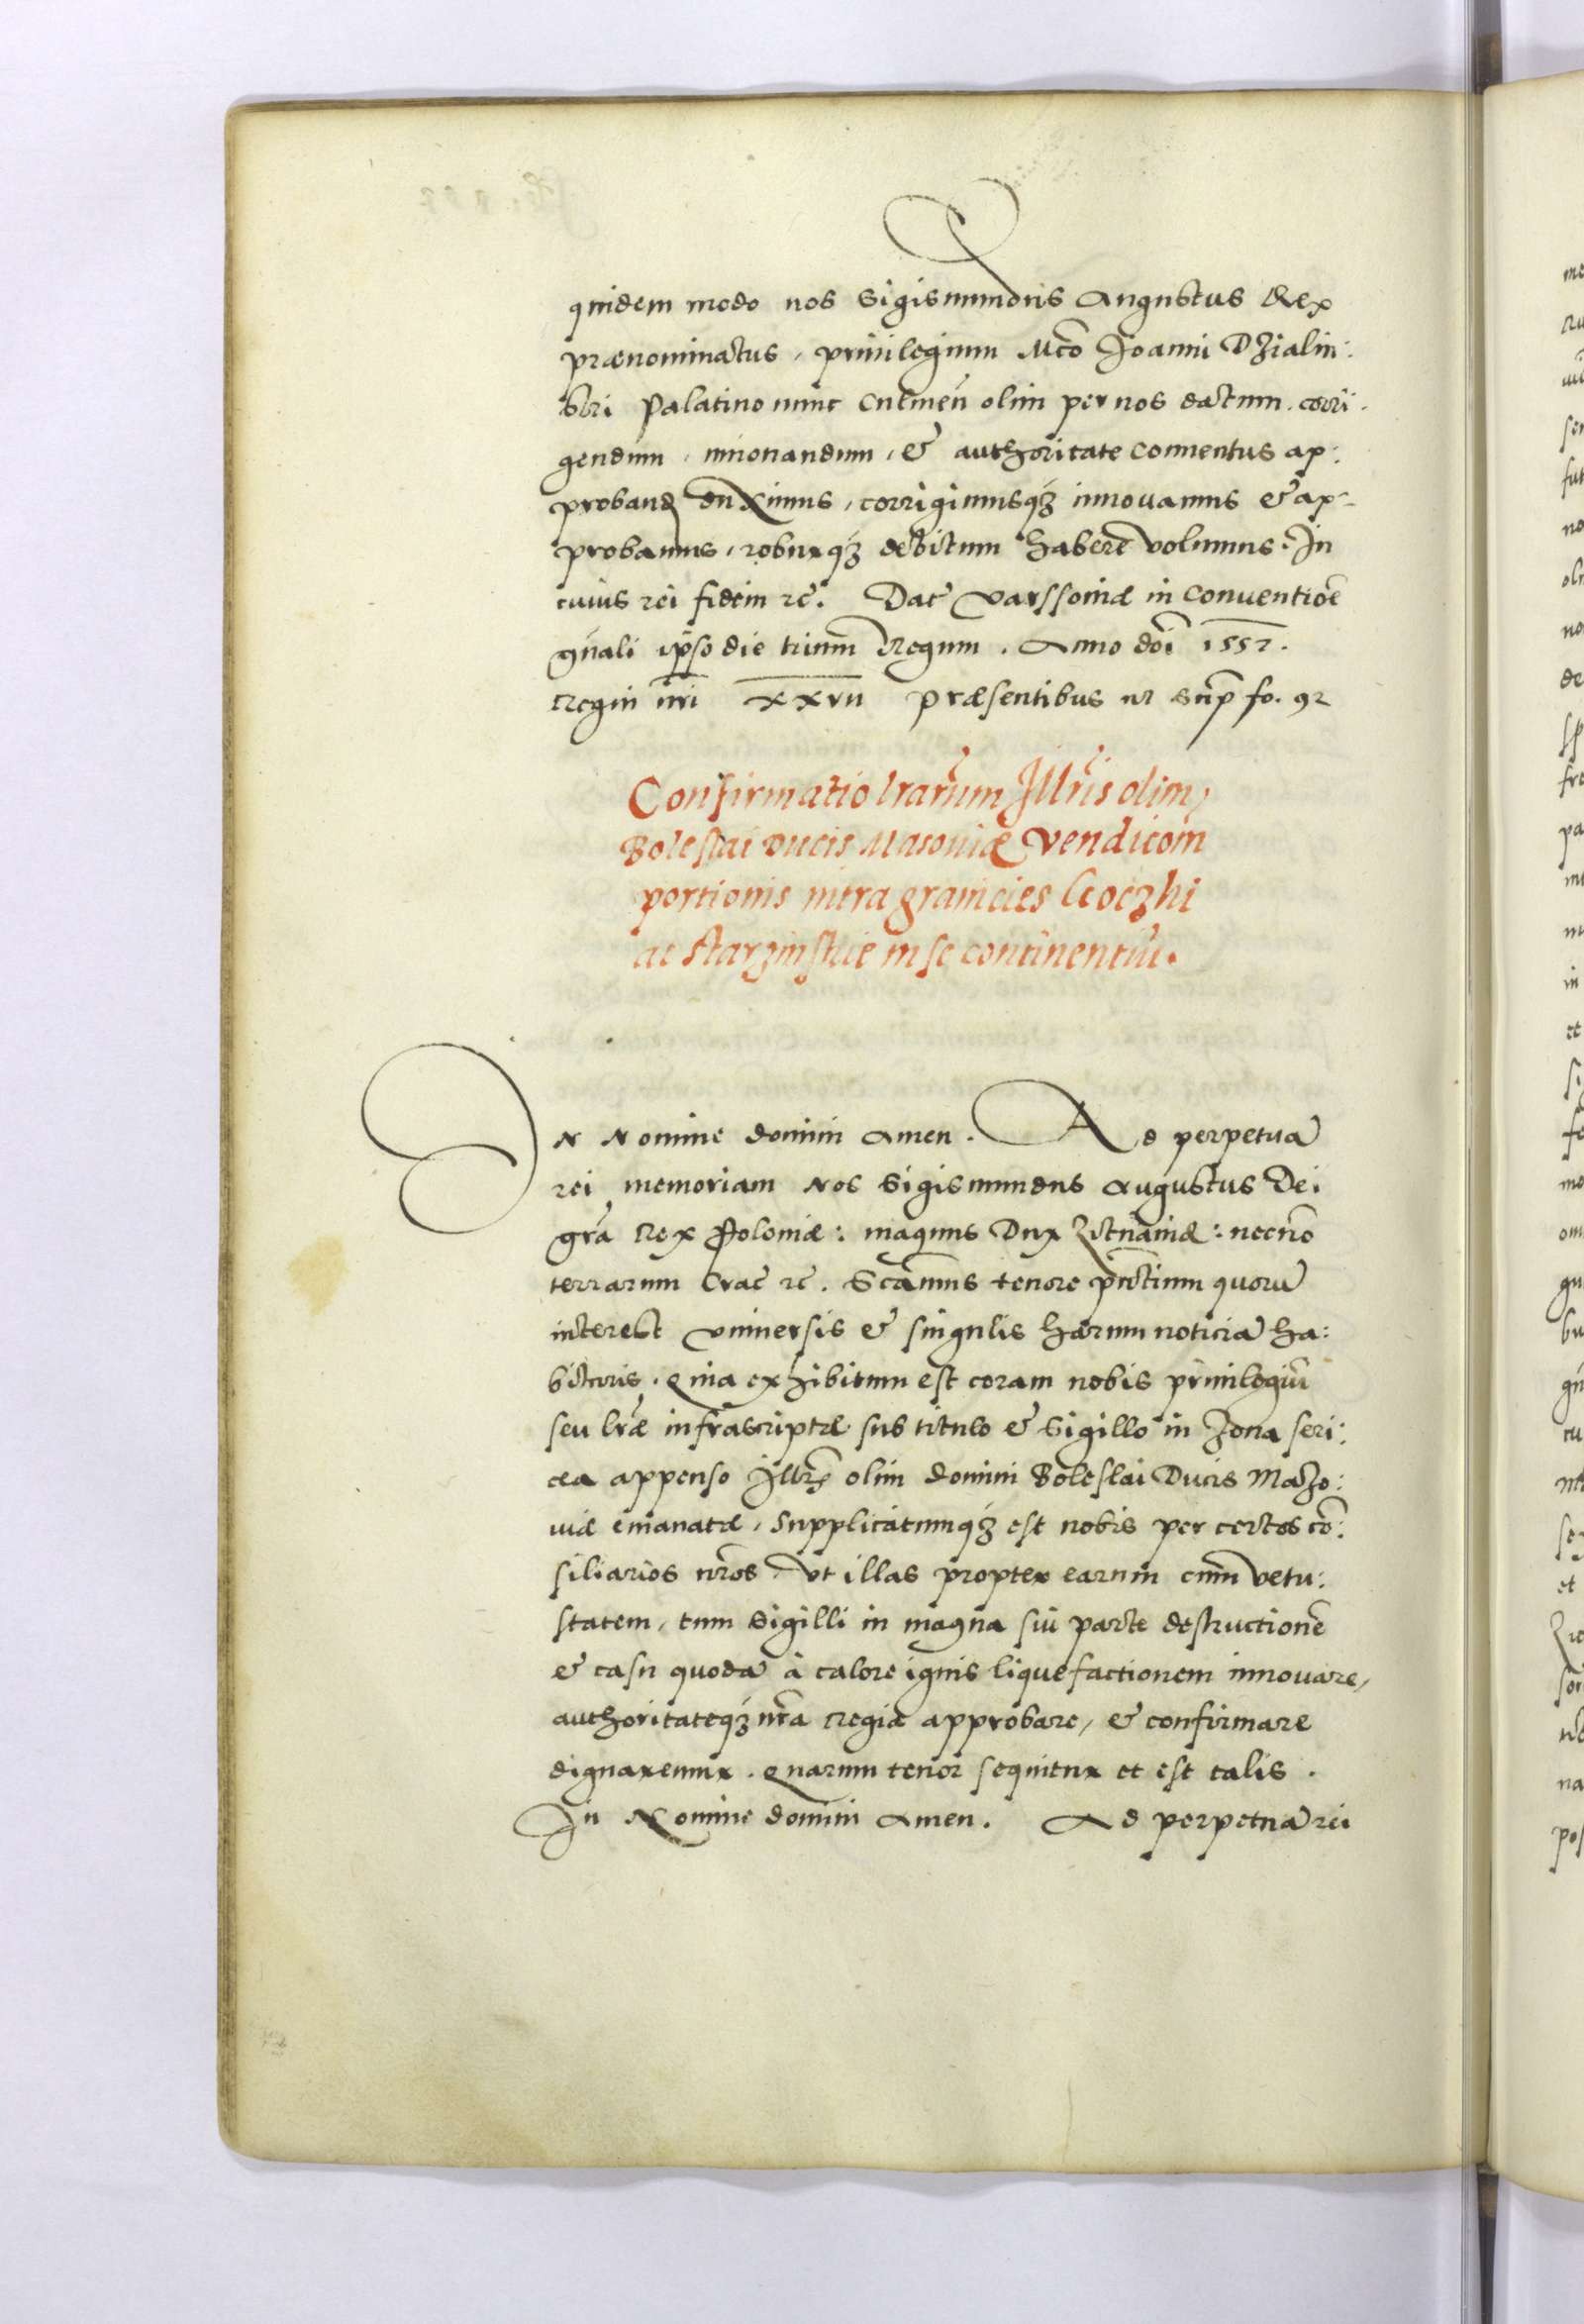 quidem modo nos Sigismundus Augustus Rex
prænominatus, priuilegium Mco Joanni Dzialin:
skri Palatino nunc Culmeñ olim per nos datum. corri
gendum, innouandum, & authoritate conuentus ap:
proband duximus, corrigimusqȝ innouamus & ap:
probamus, roburqȝ debitum habere volumus. In
cuius rei fidem rc. Dat Varssouiæ in Conuentioe
gnali ipso die trium Regum. Anno doi 1557.
Regni nri xxvii præsentibus ut sup fo. 92
Confirmatio lrarum Illris olim,
Boleslai Ducis Masouiæ Vendicom
portionis intra granicies
ac in se continentiu.
In Nomine domini Amen. Ad perpetua
rei memoriam Nos Sigismundus Augustus Dei
gra Rex Poloniæ: magnus Dux Lituaniæ: necno
terrarum Crac rc. Scamus tenore pntium quoru
interest vniuersis & singulis harum noticia ha:
bituris. Quia exhibitum est coram nobis priuilegiu
seu lræ infrascriptæ sub titulo & Sigillo in zona seri:
cea appenso Illrs olim domini Boleslai Ducis Mazo:
uiæ emanatæ, Supplicatumqȝ est nobis per certos co:
siliarios nros. Vt illas propter earum cum vetu:
statem, tum Sigilli in magna sui parte destructione
& casu quoda à calore ignis liquefactionem innouare,
authoritateqȝ nra regia approbare, & confirmare
dignaremur. Quarum tenor sequitur et est talis.
In Nomine domini Amen. Ad perpetua rei